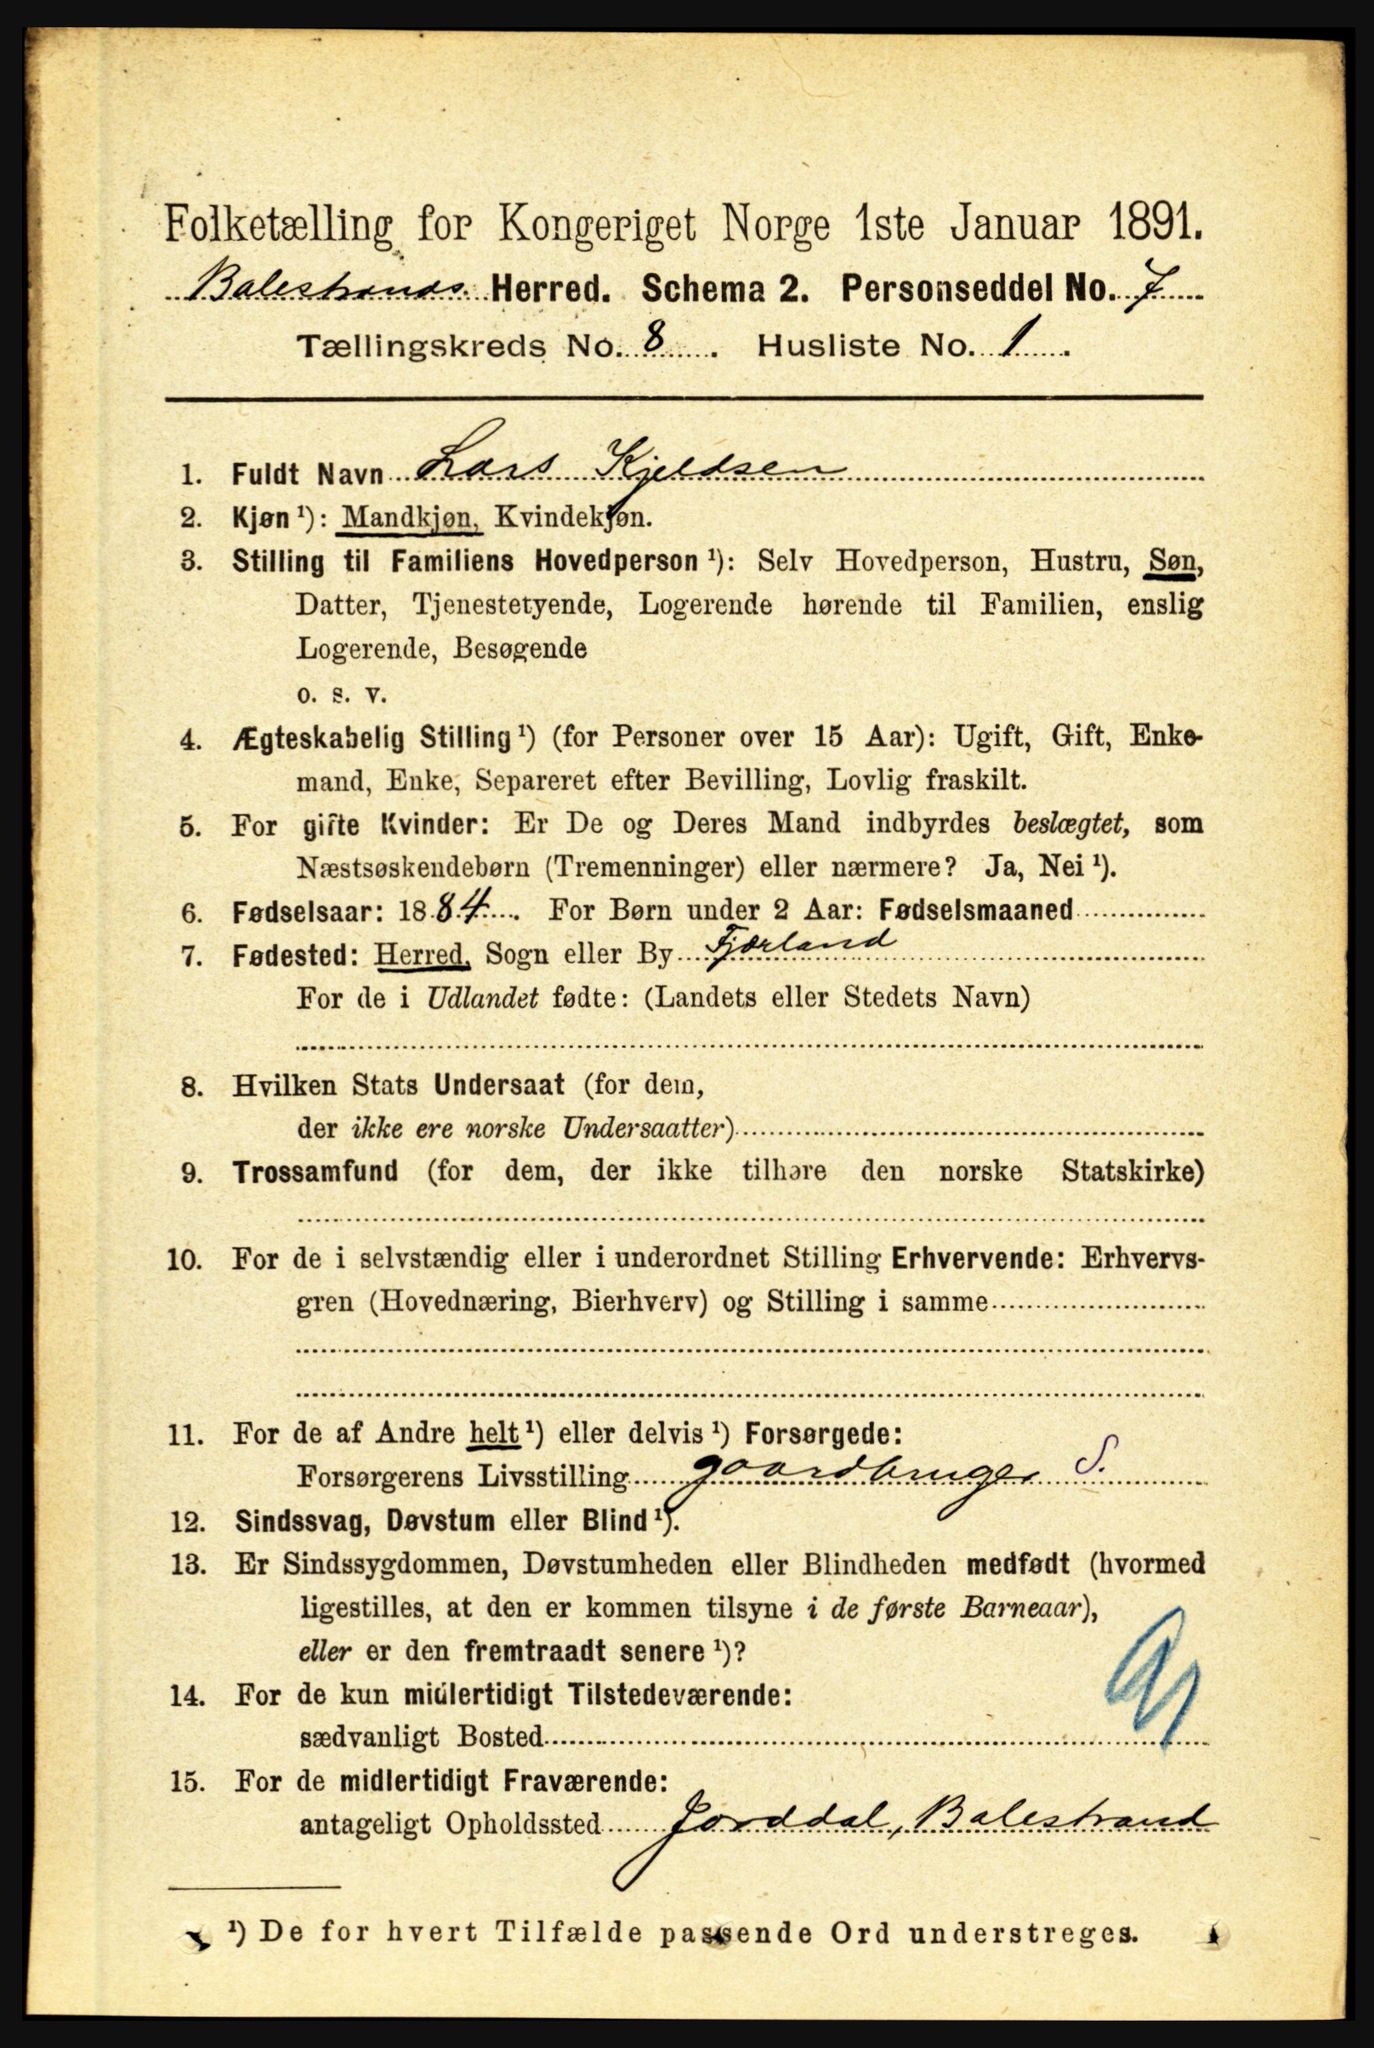 Folketælling for Kongeriget Norge 1ste Januar 1891.
Balestrands Herred. Schema 2. Personseddel No. 7
Tællingskreds No. 8. Husliste No. 1.
1. Fuldt Navn Lars Kjeldsen
2. Kjøn ¹): Mandkjøn, Kvindekjøn.
3. Stilling til Familiens Hovedperson ¹): Selv Hovedperson, Hustru, Søn,
Datter, Tjenestetyende, Logerende hørende til Familien, enslig
Logerende, Besøgende
o. s. v.
4. Ægteskabelig Stilling ¹) (for Personer over 15 Aar): Ugift, Gift, Enke-
mand, Enke, Separeret efter Bevilling, Lovlig fraskilt.
5. For gifte Kvinder: Er De og Deres Mand indbyrdes beslægtet, som
Næstsøskendebørn (Tremenninger) eller nærmere? Ja, Nei ¹).
6. Fødselsaar: 1884. For Børn under 2 Aar: Fødselsmaaned
7. Fødested: Herred, Sogn eller By Fjærland
For de i Udlandet fødte: (Landets eller Stedets Navn)
8. Hvilken Stats Undersaat (for dem,
der ikke ere norske Undersaatter)
9. Trossamfund (for dem, der ikke tilhøre den norske Statskirke)
10. For de i selvstændig eller i underordnet Stilling Erhvervende: Erhvervs-
gren (Hovednæring, Bierhverv) og Stilling i samme
11. For de af Andre helt ¹) eller delvis ¹) Forsørgede:
Forsørgerens Livsstilling gaardbruger S.
12. Sindssvag, Døvstum eller Blind ¹).
13. Er Sindssygdommen, Døvstumheden eller Blindheden medfødt (hvormed
ligestilles, at den er kommen tilsyne i de første Barneaar),
eller er den fremtraadt senere ¹)?
14. For de kun midlertidigt Tilstedeværende:
sædvanligt Bosted
15. For de midlertidigt Fraværende:
antageligt Opholdssted Jorddal, Balestrand
¹) De for hvert Tilfælde passende Ord understreges.